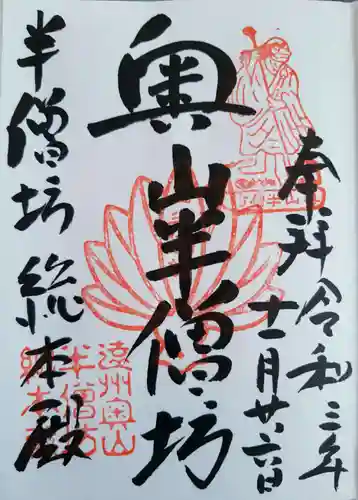 奉拝 令和三年
十一月廿六日
奥山半僧坊
半僧坊 総本殿
遠州奥山
半僧坊
総本殿